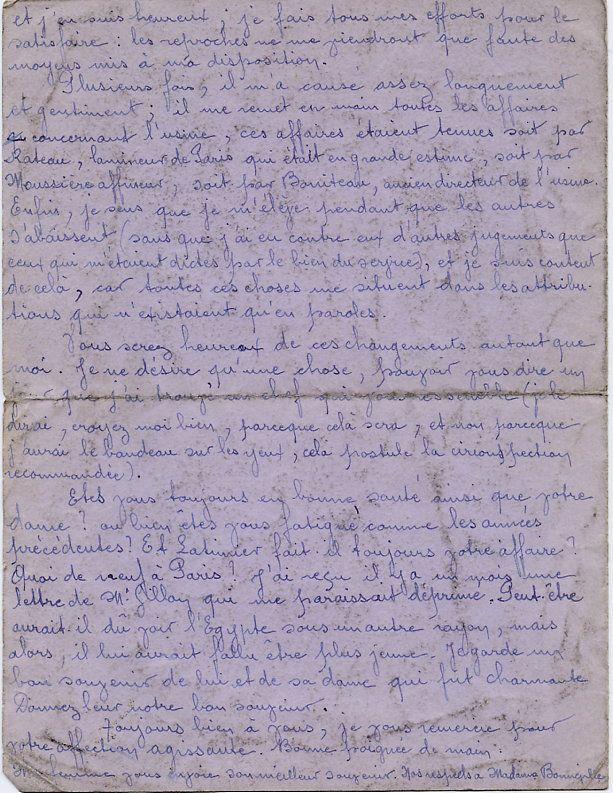 et j'en suis heureux, je fais tous mes efforts pour le
satisfaire : les reproches ne me viendront que faute des
moyens mis à ma disposition.
Plusieurs fois, il m'a causé assez longuement
et gentiment ; il me remet en main toutes les affaires
concernant l'usine, ces affaires étaient tenues soit par
Rateau, lamineur de Paris qui était en grande estime, soit par
Moussière affineur, soit par Boniteau, ancien directeur de l'usine.
Enfin, je sens que je m'élève pendant que les autres
s'abaissent (sans que j'ai eu contre eux d'autres jugements que
ceux qui m'étaient dictés par le bien du service), et je suis content
de celà, car toutes ces choses me situent dans les attribu-
tions qui n'existaient qu'en paroles.
Vous serez heureux de ces changements autant que
moi. Je ne désire qu'une chose, pouvoir vous dire un
jour que j'ai trouvé un chef qui vous ressemble (je le
dirai, croyez moi bien, parceque celà sera, et non parceque
j'aurai le bandeau sur les yeux, cela postule la circonspection
recommandée).
Etes vous toujours en bonne santé ainsi que votre
dame ? ou bien êtes vous fatigué comme les années
précédentes ? Et Latimier fait-il toujours votre affaire ?
Quoi de neuf à Paris ? J'ai reçu il y a un mois une
lettre de Mr Gillay qui me paraissait déprimé. Peut-être
aurait-il dû voir l'Egypte sous un autre rayon, mais
alors, il lui aurait fallu être plus jeune. Je garde un
bon souvenir de lui et de sa dame qui fut charmante
Donnez leur notre bon souvenir.
Toujours bien à vous, je vous remercie pour
votre affection agissante. Bonne poignée de main.
Ma femme vous envoie son meilleur souvenir. Nos respects à Madame Bonneville